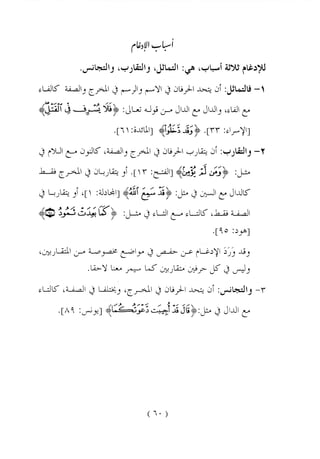 أسباب الإدغام
وللإدغام ثلاثة أسباب، هي: التماثل، والتقارب، والتجانس.
١- فالتماثل: أن يتحد الحرفان في المخرج والصفة، كالفاء
مع الفاء، والدال مع الدال من قوله تعالى: ﴿فَلَا يُسْرِف فِّى ٱلْقَتْلِ﴾
[الإسراء: ٣٣]. ﴿وَقَد دَّخَلُوا﴾ [المائدة: ٦١].
٢- والتقارب: أن يتقارب الحرفان في المخرج والصفة، كالنون مع اللام في
مثل: ﴿وَمَن لَّمْ يُؤْمِن﴾ [الفتح: ١٣]. أو يتقارب الحرفان في المخرج فقط
كالدال مع السين في مثل: ﴿قَدْ سَمِعَ ٱللَّهُ﴾ [المجادلة: ١]، أو يتقاربا في
الصفة فقط، كالتاء مع الثاء في مثل: ﴿كَمَا بَعِدَتْ ثَمُودُ ۝﴾
[هود: ٩٥].
وقد ورد الإدغام عن حفص في مواضع مخصوصة من المتقاربين،
وليس في كل حرفين متقاربين كما سيمر معنا لاحقاً.
٣- والتجانس: أن يتحد الحرفان في المخرج، ويختلفا في الصفة، كالتاء
مع الدال في مثل: ﴿قَالَ قَدْ أُجِيبَت دَّعْوَتُكُمَا﴾ [يونس: ٨٩].
(٦٠)